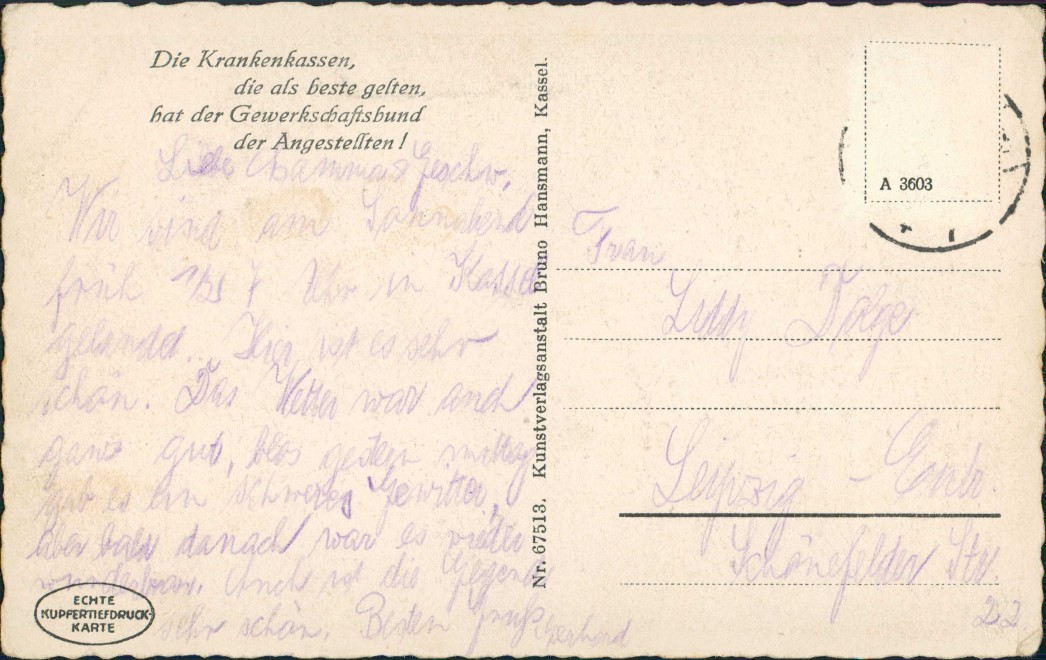 Die Krankenkassen,
die als beste gelten,
hat der Gewerkschaftsbund
der Angestellten!
Liebe Mamma & Geschw.
Wir sind am Sonnabend
früh 1/2 7 Uhr in Kassel
gelandet. Hier ist es sehr
schön. Das Wetter war auch
ganz gut, blos gestern mittag
gab es ein schweres Gewitter,
aber bald danach war es wieder
wunderbar. Auch ist die Gegend
sehr schön. Besten Gruß Gerhard
ECHTE
KUPFERTIEFDRUCK-
KARTE
Nr. 67513. Kunstverlagsanstalt Bruno Hansmann, Kassel.
A 3603
Frau
Liddy
Leipzig -
Schönefelder Str.
22